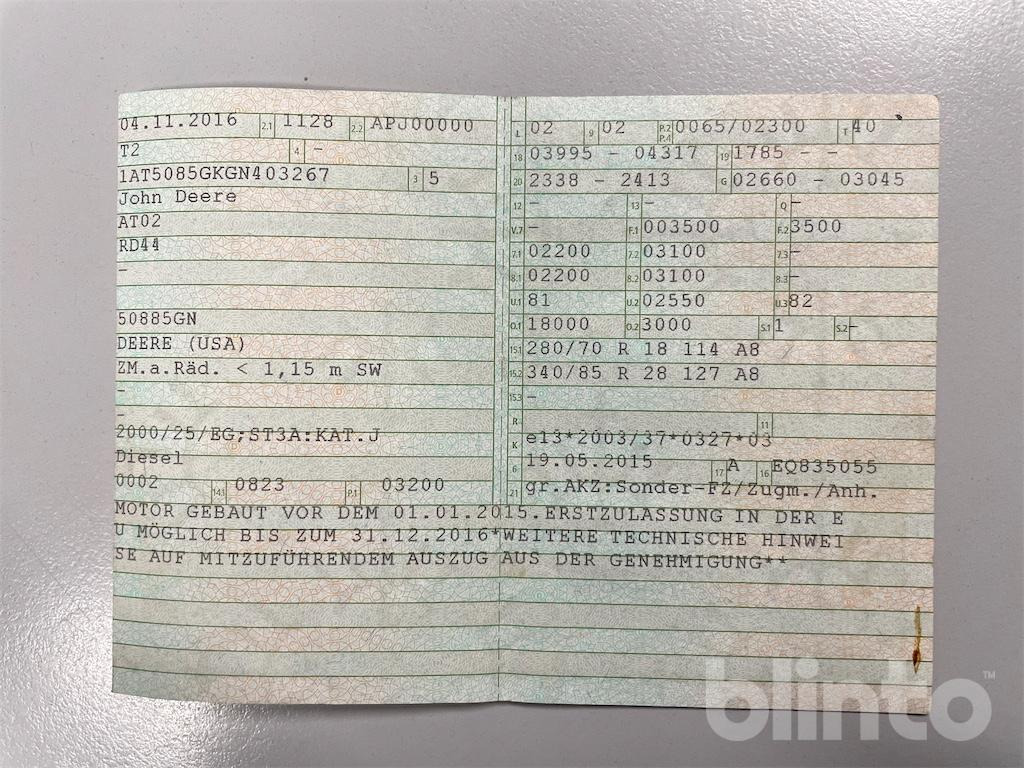 04.11.2016 2.1 1128 2.2 APJ00000
T2 4 -
1AT5085GKGN403267 3 5
John Deere
AT02
RD44
-
50885GN
DEERE (USA)
ZM.a.Räd. < 1,15 m SW
-
2000/25/EG;ST3A:KAT.J
Diesel
0002 14.1 0823 P.1 03200
L 02 9 02 P.2 P.4 0065/02300 T 40
18 03995 - 04317 19 1785 - -
20 2338 - 2413 G 02660 - 03045
12 - 13 - Q -
V.7 - F.1 003500 F.2 3500
7.1 02200 7.2 03100 7.3 -
8.1 02200 8.2 03100 8.3 -
U.1 81 U.2 02550 U.3 82
O.1 18000 O.2 3000 S.1 1 S.2 -
15.1 280/70 R 18 114 A8
15.2 340/85 R 28 127 A8
15.3 -
R 11
K e13*2003/37*0327*03
6 19.05.2015 17 A 16 EQ835055
21 gr.AKZ:Sonder-FZ/Zugm./Anh.
MOTOR GEBAUT VOR DEM 01.01.2015.ERSTZULASSUNG IN DER E
U MÖGLICH BIS ZUM 31.12.2016*WEITERE TECHNISCHE HINWEI
SE AUF MITZUFÜHRENDEM AUSZUG AUS DER GENEHMIGUNG**
blinto™